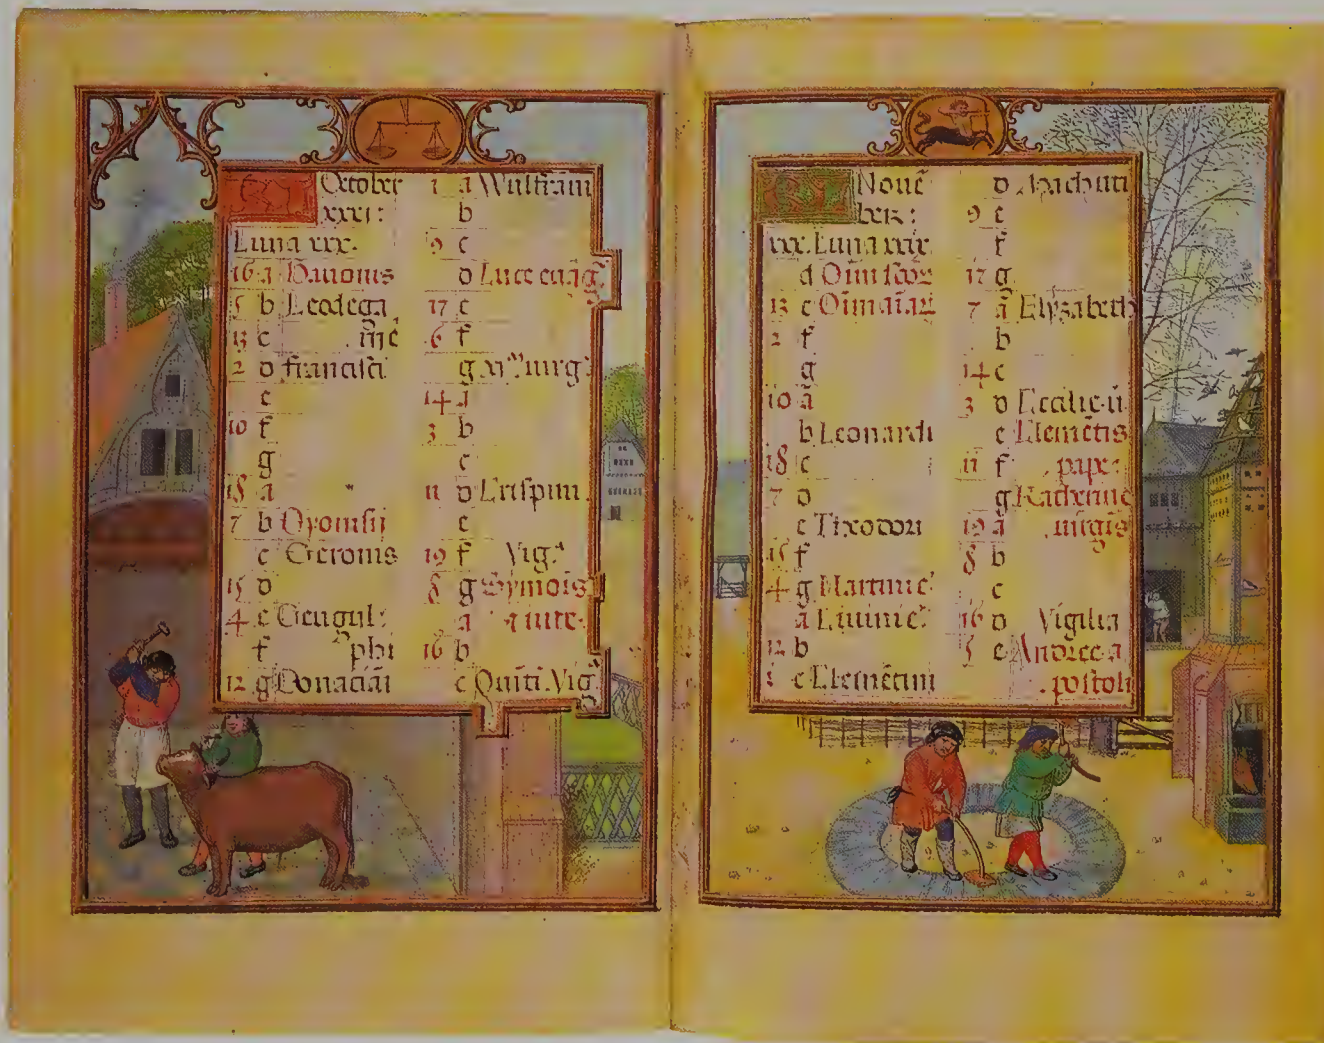 KL October
xxxi :
Luna xxx.
16 a Bauonis
5 b Leodega
13 c
2 d francisci
e
10 f
g
18 a
7 b Dyonisij
c Gereonis
15 d
4 e
f phi
12 g Donaciāi
1 a Wulfrāni
b
9 c
d Luce euāg
17 e
6 f
g xi virg
14 a
3 b
c
11 d Crispini
e
19 f Vig
8 g Symoīs
a iude
16 b
c Quīti Vig
KL Nouē
xxx. Luna xxix
d Oīm scōr
13 e Oīm aīar
2 f
g
10 a
b Leonardi
18 c
7 d
e Theodori
15 f
4 g Martini e
a Liuini e
12 b
c
d Machuti
9 e
f
17 g
7 a Elyzabeth
b
14 c
3 d Cecilie ū
e Clemētis
11 f pape
g Katherine
19 a uirgīs
8 b
c
16 d Vigilia
5 e Andree a
postoli